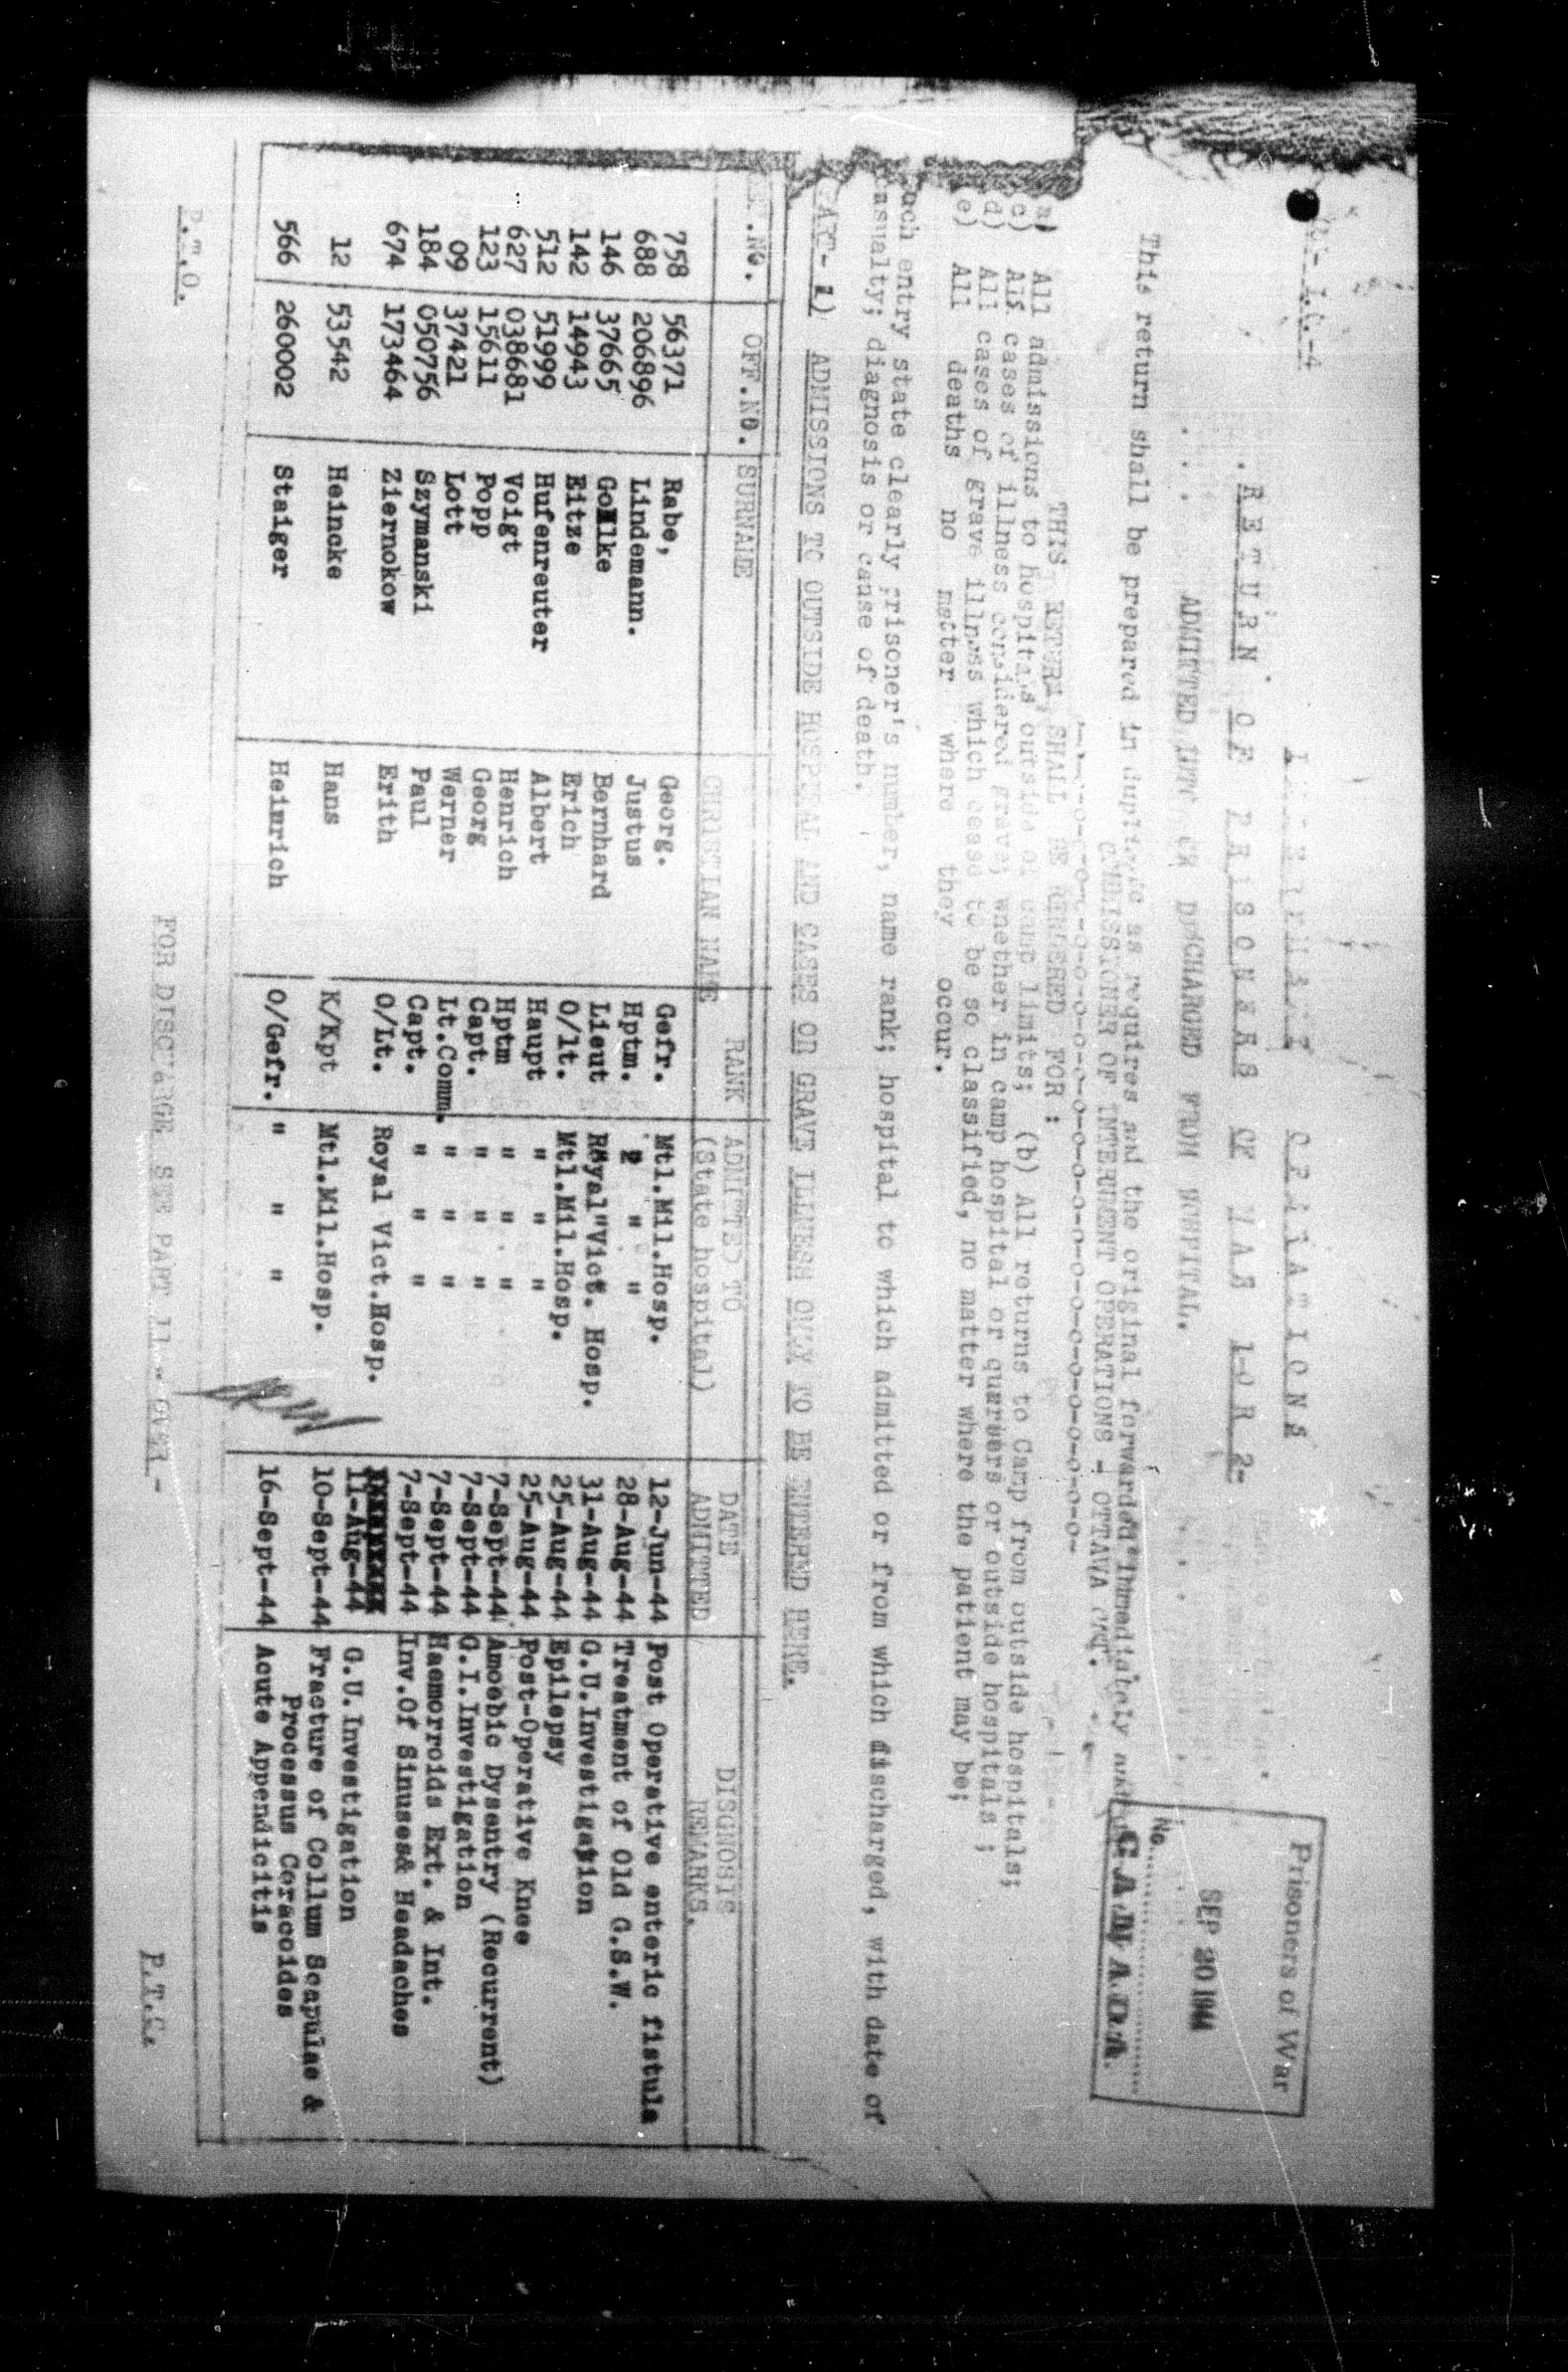 I.O.-4
Prisoners of War
SEP 20 1944
No.
C.A.D.A.
INTERNMENT OPERATIONS
RETURN OF PRISONERS OF WAR 1 OR 2-
ADMITTED INTO OR DISCHARGED FROM HOSPITAL.
This return shall be prepared in duplicate as requires and the original forwarded immediately
COMMISSIONER OF INTERNMENT OPERATIONS - OTTAWA ONT.
THIS RETURN SHALL BE RENDERED FOR :
a) All admissions to hospitals outside of camp limits; (b) All returns to Camp from outside hospitals;
c) All cases of illness considered grave; whether in camp hospital or quarters or outside hospitals ;
d) All cases of grave illness which cease to be so classified, no matter where the patient may be;
e) All deaths no matter where they occur.
each entry state clearly prisoner's number, name rank; hospital to which admitted or from which discharged, with date of
casualty; diagnosis or cause of death.
PART- 1) ADMISSIONS TO OUTSIDE HOSPITAL AND CASES OR GRAVE ILLNESS ONLY TO BE ENTERED HERE.
INT.NO. OFF.NO. SURNAME CHRISTIAN NAME RANK ADMITTED TO (State hospital) DATE ADMITTED DISGNOSIS REMARKS.
758 56371 Rabe, Georg. Gefr. Mtl.Mil.Hosp. 12-Jun-44 Post Operative enteric fistula
688 206896 Lindemann. Justus Hptm. " " " 28-Aug-44 Treatment of Old G.S.W.
146 37665 Gomlke Bernhard Lieut Royal Vict. Hosp. 31-Aug-44 G.U.Investigation
142 14943 Eitze Erich O/lt. Mtl.Mil.Hosp. 25-Aug-44 Epilepsy
512 51999 Hufenreuter Albert Haupt " " " 25-Aug-44 Post-Operative Knee
627 038681 Voigt Henrich Hptm " " " 7-Sept-44 Amoebic Dysentry (Recurrent)
123 15611 Popp Georg Capt. " " " 7-Sept-44 G.I.Investigation
09 37421 Lott Werner Lt.Comm. " " " 7-Sept-44 Haemorroids Ext. & Int.
184 050756 Szymanski Paul Capt. " " " 7-Sept-44 Inv.Of Sinuses& Headaches
674 173464 Ziernokow Erith O/Lt. Royal Vict.Hosp. 11-Aug-44 G.U.Investigation
12 53542 Heincke Hans K/Kpt Mtl.Mil.Hosp. 10-Sept-44 Fracture of Collum Scapulae &
Processus Coracoides
566 260002 Staiger Heinrich O/Gefr. " " " 16-Sept-44 Acute Appendicitis
P.T.O.
FOR DISCHARGE SEE PART 11 - OVER -
P.T.O.